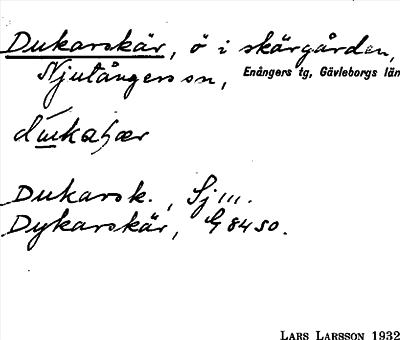 Dukarskär, ö i skärgården,
Njutångers sn, Enångers tg, Gävleborgs län
Dukarsk., Sj III.
Dykarskär, G 8450.
LARS LARSSON 1932